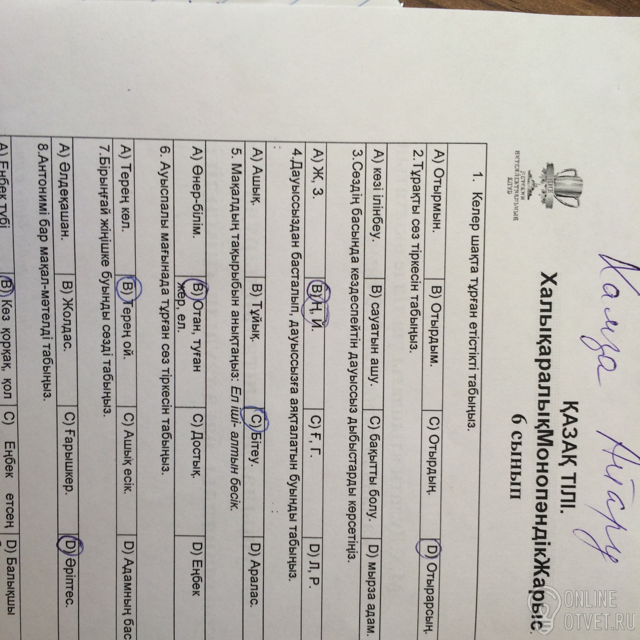 Хамза Нұгару
ДЕРЕКТІ
ИНТЕЛЛЕКТУАЛДЫҚ
КЛУБ
ҚАЗАҚ ТІЛІ.
ХалықаралықМонопәндікЖарыс.
6 сынып
1. Келер шақта тұрған етістікті табыңыз.
A) Отырмын. B) Отырдым. C) Отырдың. D) Отырарсың.
2.Тұрақты сөз тіркесін табыңыз.
A) көзі ілінбеу. B) сауатын ашу. C) бақытты болу. D) мырза адам.
3.Сөздің басында кездеспейтін дауыссыз дыбыстарды көрсетіңіз.
A) Ж, З. B) Ң, Й. C) Ғ, Г. D) Л, Р.
4.Дауыссыздан басталып, дауыссызға аяқталатын буынды табыңыз.
A) Ашық. B) Тұйық. C) Бітеу. D) Аралас.
5. Мақалдың тақырыбын анықтаңыз: Ел іші- алтын бесік.
A) Өнер-білім. B) Отан, туған жер, ел. C) Достық. D) Еңбек
6. Ауыспалы мағынада тұрған сөз тіркесін табыңыз.
A) Терең көл. B) Терең ой. C) Ашық есік. D) Адамның бас
7.Бірыңғай жіңішке буынды сөзді табыңыз.
A) Әлдеқашан. B) Жолдас. C) Ғарышкер. D) Әріптес.
8.Антонимі бар мақал-мәтелді табыңыз.
A) Еңбек түбі B) Көз қорқақ, қол C) Еңбек етсең D) Балықшы
ONLINE
OTVET.RU